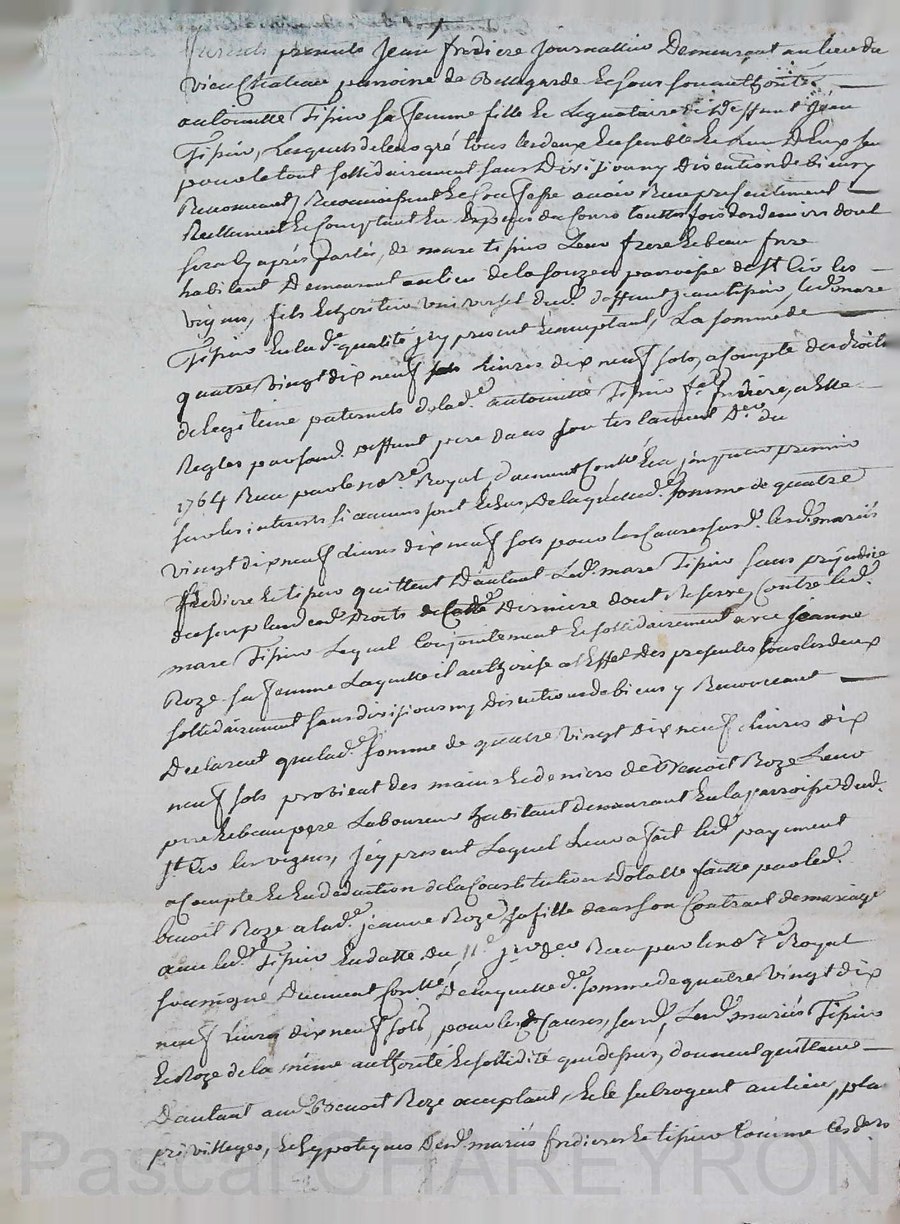 furent presents Jean fridiere Journallier Demeurant au lieu du
vieux Chateau parroisse de Bellegarde Et sous son authorité
antoinette Tipier sa femme fille Et Legataire de Deffunt Jean
Tipier, Lesquels de leur gré tous les deux Ensemble Et l'un D'Eux seul
pour le tout sollidairement sans Division ny Discution de biens y
Renonceant, Reconnoissent Et Confesse avoir Reçu presentement
Reellement Et Comptant En Especes du Cours touttes fois des deniers dont
sera Cy après parlée, de marc tipier Leur frere Et beau frere
habitant Demeurant au lieu de la parroisse de St Cir les
vignes, fils Et heritier universel dud. deffunt Jean tipier, led. marc
Tipier En lad.e qualité icy present Et acceptant, La somme de
quatre vingt dix neuf Livres dix neuf sols, a Compte des droits
de legitime paternels de lad.e antoinette Tipier f.e fridiere, a Elle
Regles par sond. deffunt pere dans son testament D.ere du
1764 Reçu par le no.re Royal, duement Conttrôlé
sur les interets si aucuns sont Echus, De laquelle d. somme de quatre
vingt dix neuf Livres dix neuf sols pour les Causes susd. lesd. mariés
fridiere Et tipier quittent D'autant Led. marc Tipier sans préjudice
du surplus desd. Droits de Cette Derniere dont Reserve, Contre led.
marc Tipier Lequel Conjointement Et sollidairement avec Jeanne
Roze sa femme Laquelle il authorise a l'Effet Des presentes tous les deux
sollidairement sans divisions ny discutions de biens y Renonceant
Declarent que lad.e somme de quatre vingt dix neuf livres dix
neuf sols provient des mains Et deniers de Benoit Roze Leur
pere Et beau pere Laboureur habitant demeurant En la parroisse dud.
St Cir les vignes, icy present Lequel Leur a fait led. payement
a Compte Et En deduction de la Constitution Dotalle faitte par led.
benoit Roze a lad.e jeanne Roze sa fille dans son Contract de mariage
avec led. Tipier En datte du 11.e Reçu par le no.re Royal
soussigné Duement Conttrôlé, De laquelle d. somme de quatre vingt dix
neuf Livres dix neuf sols, pour les Causes susd., Lesd. mariés Tipier
Et Roze de la même authorité Et sollidité que dessus, donnent quittance
D'autant aud. Benoit Roze acceptant, Et le subrogent au lieu, place
privilleges, Et hypoteques Desd. mariés fridiere Et tipier Comme les
Pascal CHAREYRON